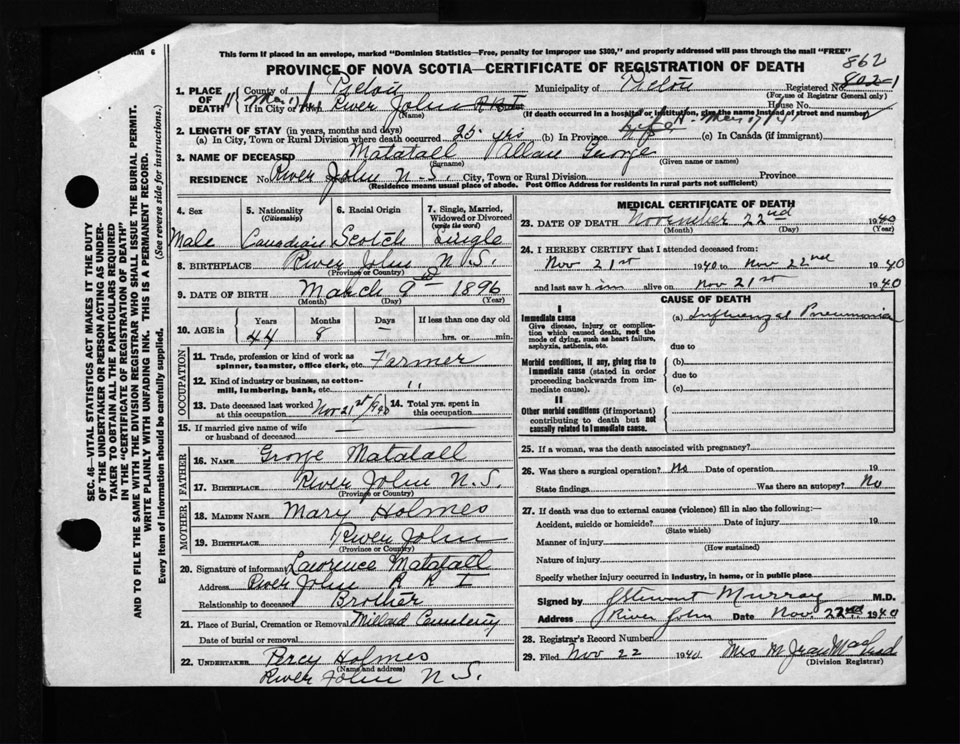 RM 6
This form if placed in an envelope, marked "Dominion Statistics—Free, penalty for improper use $300," and properly addressed will pass through the mail "FREE"
PROVINCE OF NOVA SCOTIA—CERTIFICATE OF REGISTRATION OF DEATH
862
1. PLACE OF DEATH County of Pictou Municipality of Pictou Registered No. 802-1
(For use of Registrar General only)
If in City or Town River John R R I House No.
(Name) (If death occurred in a hospital or institution, give the name instead of street and number)
2. LENGTH OF STAY (in years, months and days)
(a) In City, Town or Rural Division where death occurred 25 yrs (b) In Province life (c) In Canada (if immigrant)
3. NAME OF DECEASED Matatall Allan George
(Surname) (Given name or names)
RESIDENCE No. River John N.S. City, Town or Rural Division Province
(Residence means usual place of abode. Post Office Address for residents in rural parts not sufficient)
4. Sex 5. Nationality (Citizenship) 6. Racial Origin 7. Single, Married, Widowed or Divorced (write the word)
Male Canadian Scotch Single
8. BIRTHPLACE River John N.S.
(Province or Country)
9. DATE OF BIRTH March 9th 1896
(Month) (Day) (Year)
10. AGE in Years Months Days If less than one day old
44 8 – hrs. or min.
OCCUPATION
11. Trade, profession or kind of work as spinner, teamster, office clerk, etc. Farmer
12. Kind of industry or business, as cotton-mill, lumbering, bank, etc. "
13. Date deceased last worked at this occupation Nov 21st/1940 14. Total yrs. spent in this occupation
15. If married give name of wife or husband of deceased
FATHER
16. NAME George Matatall
17. BIRTHPLACE River John N.S.
(Province or Country)
MOTHER
18. MAIDEN NAME Mary Holmes
19. BIRTHPLACE River John
(Province or Country)
20. Signature of informant Lawrence Matatall
Address River John R R I
Relationship to deceased Brother
21. Place of Burial, Cremation or Removal Millard Cemetery
Date of burial or removal
22. UNDERTAKER Percy Holmes
(Name and address)
River John N.S.
MEDICAL CERTIFICATE OF DEATH
23. DATE OF DEATH November 22nd 1940
(Month) (Day) (Year)
24. I HEREBY CERTIFY that I attended deceased from:
Nov 21st 1940 to Nov 22nd 1940
and last saw him alive on Nov 21st 1940
CAUSE OF DEATH
Immediate cause
Give disease, injury or complication which caused death, not the mode of dying, such as heart failure, asphyxia, asthenia, etc.
(a) Influenzal Pneumonia
due to
Morbid conditions, if any, giving rise to immediate cause (stated in order proceeding backwards from immediate cause).
(b)
due to
(c)
II
Other morbid conditions (if important) contributing to death but not causally related to immediate cause.
25. If a woman, was the death associated with pregnancy?
26. Was there a surgical operation? No Date of operation 19
State findings Was there an autopsy? No
27. If death was due to external causes (violence) fill in also the following:—
Accident, suicide or homicide? Date of injury 19
(State which)
Manner of injury
(How sustained)
Nature of injury
Specify whether injury occurred in industry, in home, or in public place
Signed by J Stewart Murray M.D.
Address River John Date Nov 22nd 1940
28. Registrar's Record Number
29. Filed Nov 22 1940 Mrs M Jean MacLeod
(Division Registrar)
SEC. 46—VITAL STATISTICS ACT MAKES IT THE DUTY
OF THE UNDERTAKER OR PERSON ACTING AS UNDER-
TAKER TO OBTAIN ALL THE PARTICULARS REQUIRED
IN THE "CERTIFICATE OF REGISTRATION OF DEATH"
AND TO FILE THE SAME WITH THE DIVISION REGISTRAR WHO SHALL ISSUE THE BURIAL PERMIT.
WRITE PLAINLY WITH UNFADING INK. THIS IS A PERMANENT RECORD.
Every item of information should be carefully supplied. (See reverse side for instructions.)